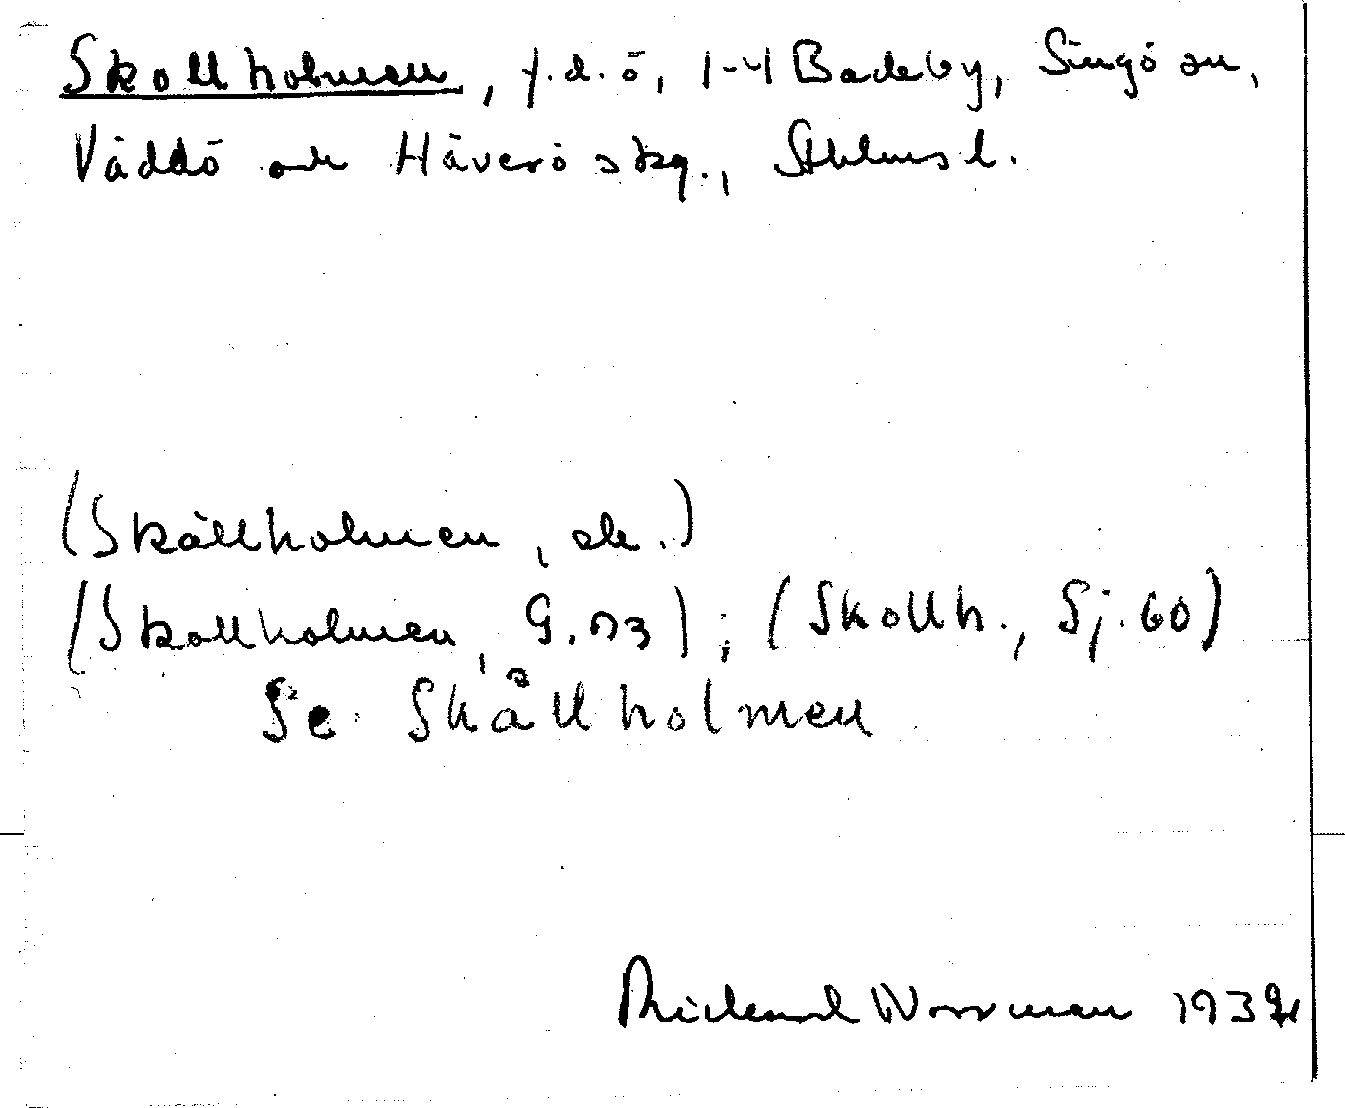 Skollholmen, f.d. ö, 1-4 Backeby, Singö sn,
Väddö och Häverö skg., Sthlms l.
(Skällholmen, ek.)
(Skollholmen, G. 73); (Skollh., Sj. 60)
Se Skållholmen
Rickard Norrman 193